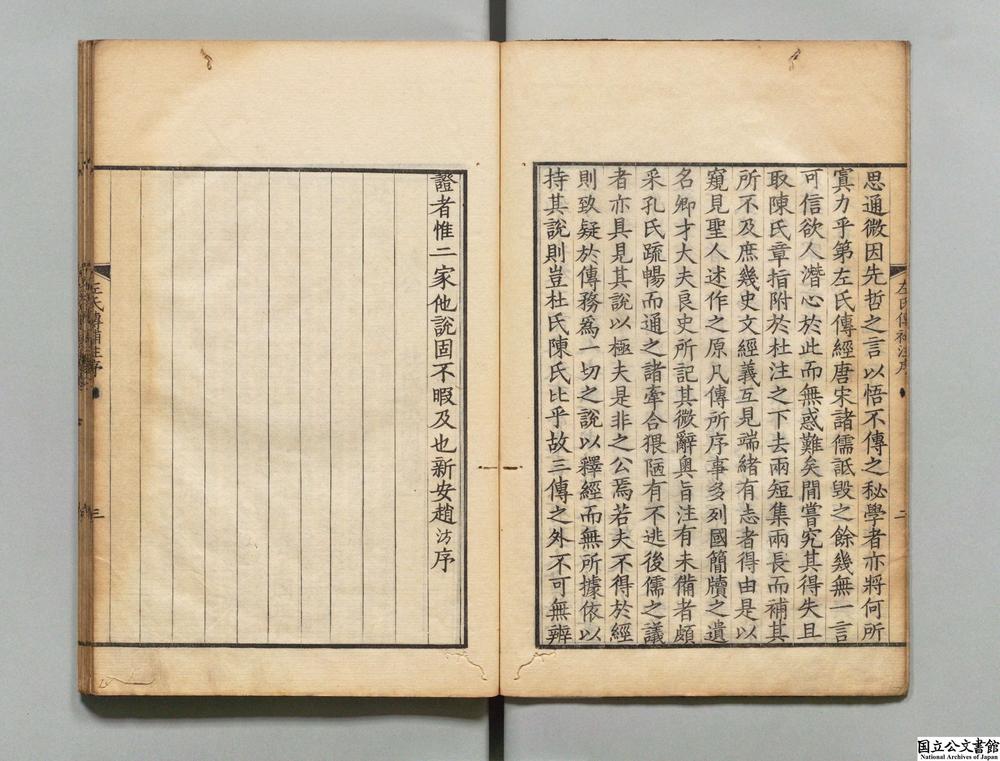 思通微因先哲之言以悟不傳之秘學者亦將何所
寘力乎第左氏傳經唐宋諸儒詆毀之餘幾無一言
可信欲人潛心於此而無惑難矣間嘗究其得失且
取陳氏章指附於杜注之下去兩短集兩長而補其
所不及庶幾史文經義互見端緒有志者得由是以
窺見聖人述作之原凡傳所序事多列國簡牘之遺
名卿才大夫良史所記其微辭奧旨注有未備者頗
采孔氏疏暢而通之諸牽合猥陋有不逃後儒之議
者亦具見其說以極夫是非之公焉若夫不得於經
則致疑於傳務爲一切之說以釋經而無所據依以
持其說則豈杜氏陳氏比乎故三傳之外不可無辨
左氏傳補注序
二
證者惟二家他說固不暇及也新安趙汸序
左氏傳補注序
三
国立公文書館
National Archives of Japan